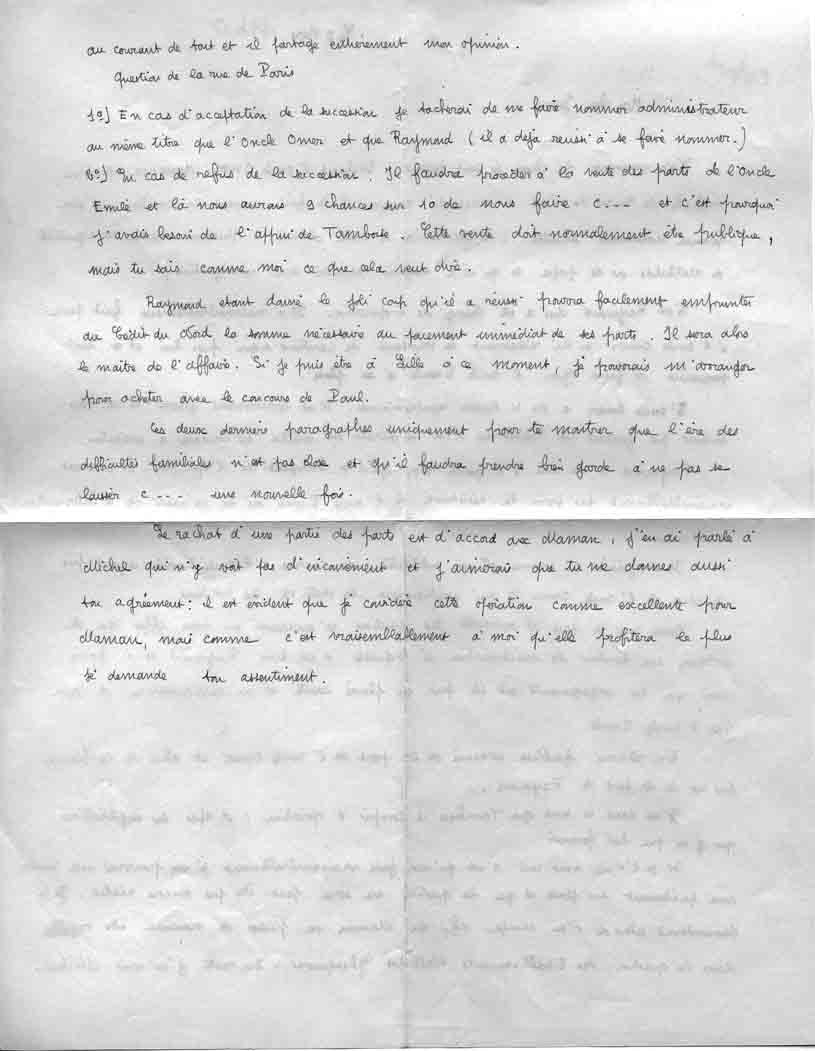 au courant de tout et il partage entièrement mon opinion.
Question de la rue de Paris
1º) En cas d'acceptation de la succession je tacherai de me faire nommer administrateur
au même titre que l'Oncle Omer et que Raymond (il a déjà réussi à se faire nommer.)
2º) En cas de refus de la succession. Il faudra procéder à la vente des parts de l'Oncle
Emile et là nous aurons 9 chances sur 10 de nous faire c--- et c'est pourquoi
j'avais besoin de l'appui de Tamboise. Cette vente doit normalement être publique,
mais tu sais comme moi ce que cela veut dire.
Raymond etant donné le joli coup qu'il a réussi pourra facilement emprunter
au Crédit du Nord la somme nécessaire au paiement immédiat de ses parts. Il sera alors
le maitre de l'affaire. Si je puis être à Lille à ce moment, je pourrais m'arranger
pour acheter avec le concours de Paul.
Ces deux derniers paragraphes uniquement pour te montrer que l'ère des
difficultés familiales n'est pas close et qu'il faudra prendre bien garde à ne pas se
laisser c--- une nouvelle fois.
Le rachat d'une partie des parts est d'accord avec Maman, j'en ai parlé à
Michel qui n'y voit pas d'inconvénient et j'aimerais que tu me donnes aussi
ton agrément: il est évident que je considère cette opération comme excellente pour
Maman, mais comme c'est vraisemblablement à moi qu'elle profitera le plus
je demande ton assentiment.